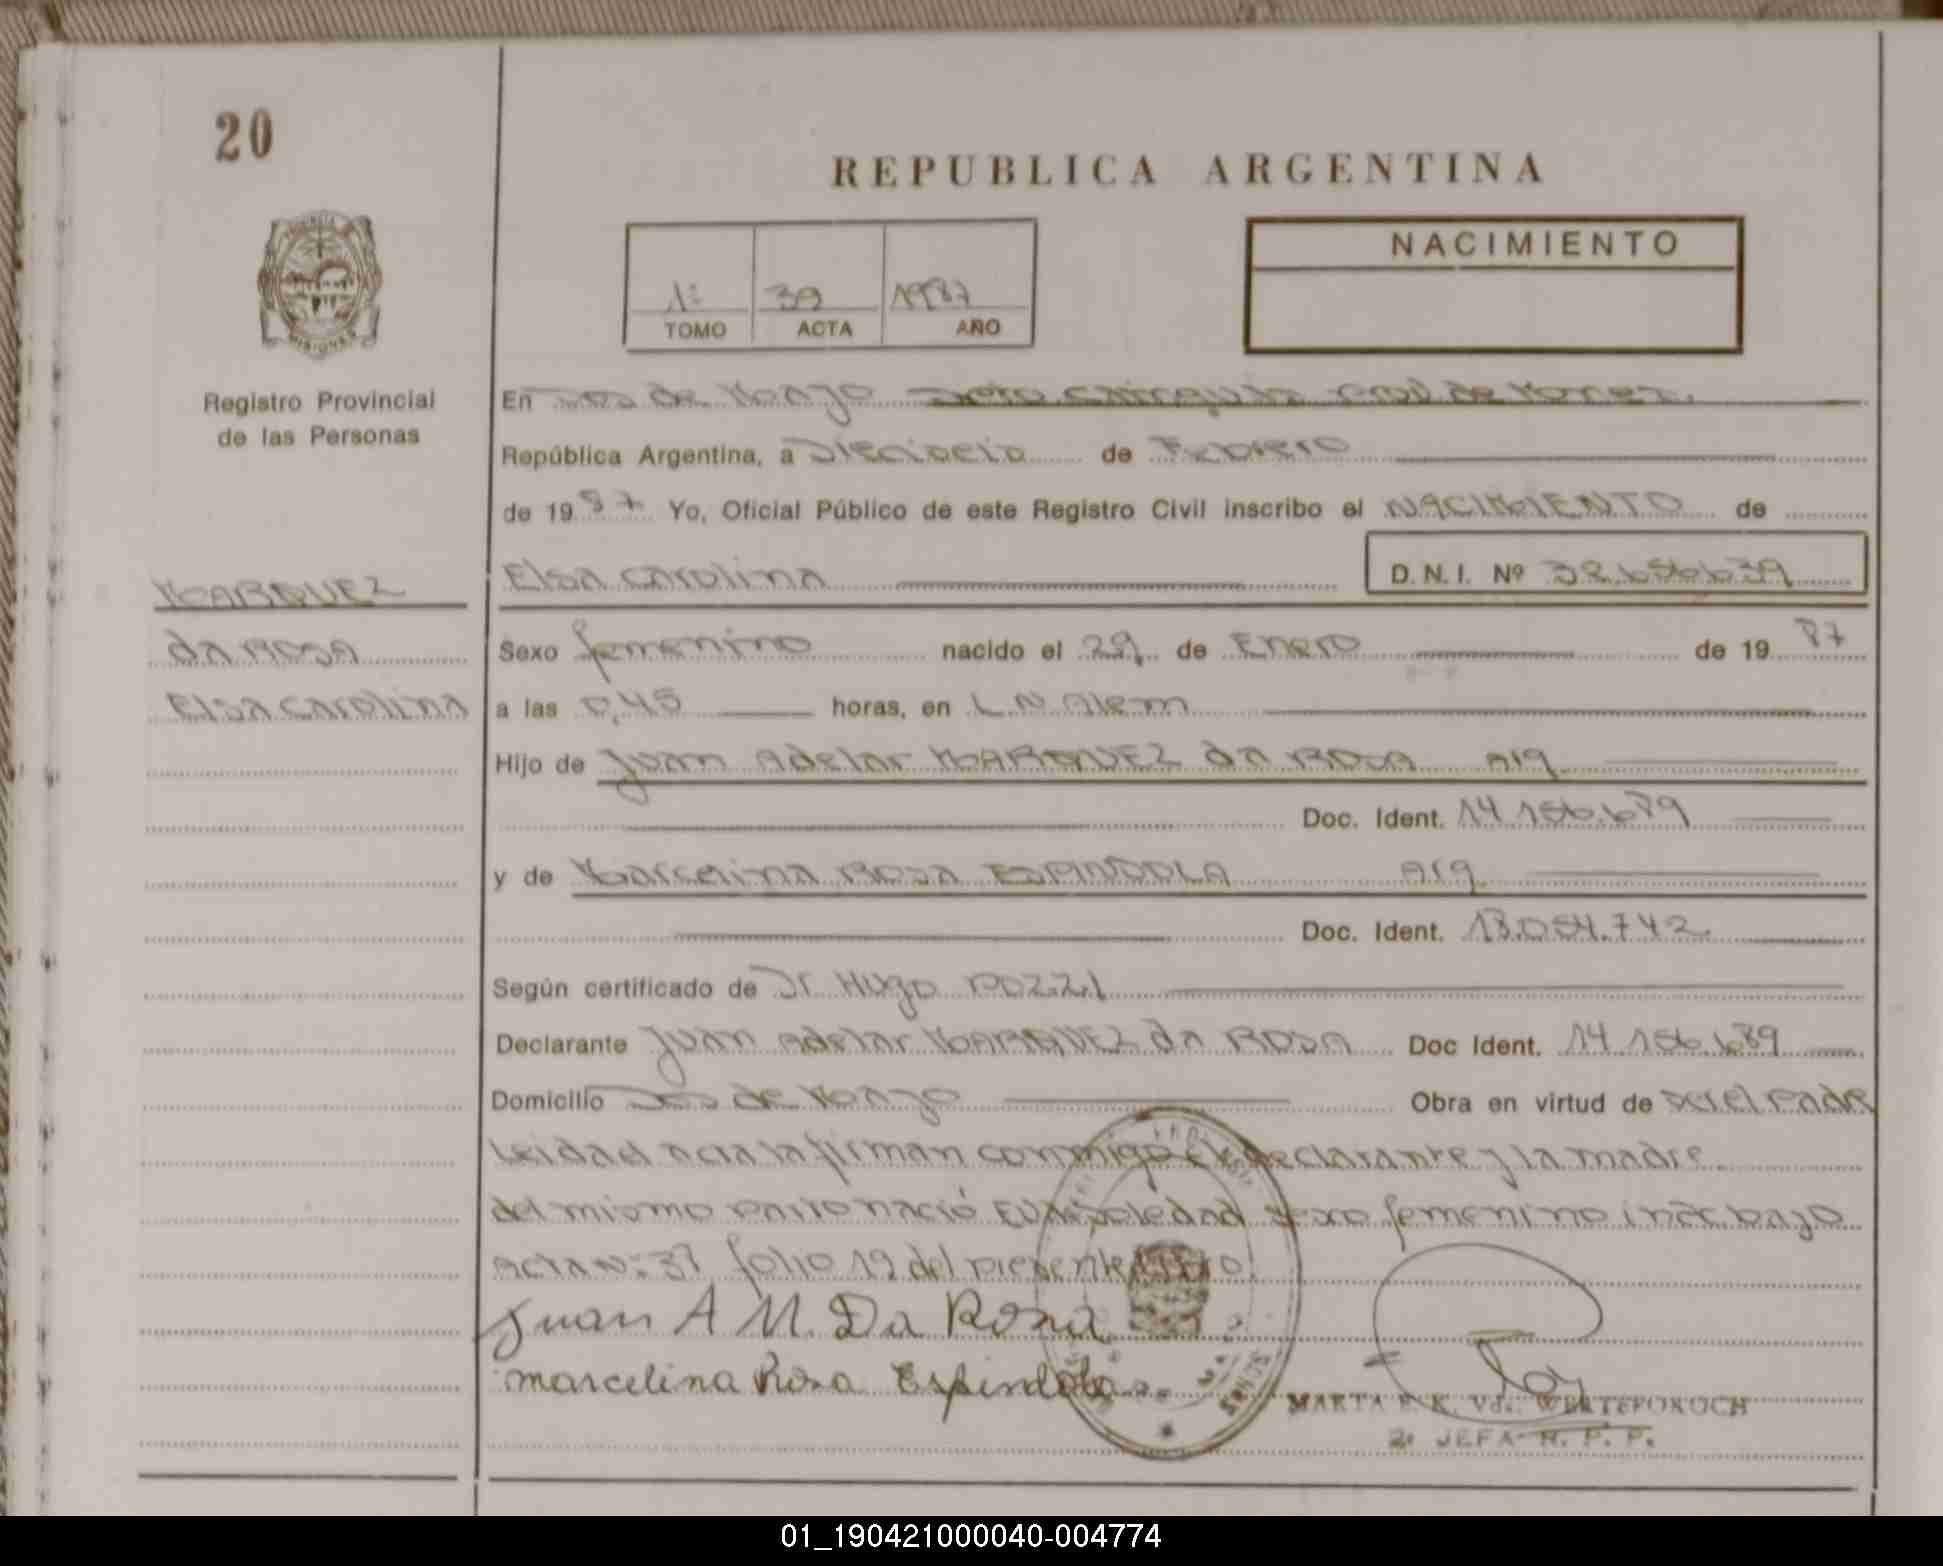 20
REPUBLICA ARGENTINA
NACIMIENTO
1º 39 1987
TOMO ACTA AÑO
MISIONES
Registro Provincial
de las Personas
En Dos de Mayo Dpto Cainguas Prov. de Mnes.
República Argentina, a Dieciocho de Febrero
de 1987 Yo, Oficial Público de este Registro Civil inscribo el NACIMIENTO de
MARQUEZ
da ROSA
Elsa Carolina
Elsa Carolina D.N.I. Nº 32.656.639
Sexo femenino nacido el 29 de Enero de 1987
a las 0,45 horas, en L.N. Alem
Hijo de Juan Adelar MARQUEZ da ROSA Arg.
Doc. Ident. 14.156.689
y de Marcelina Rosa ESPINDOLA Arg.
Doc. Ident. 13.054.742
Según certificado de Dr Hugo POZZI
Declarante Juan Adelar MARQUEZ da ROSA Doc Ident. 14.156.689
Domicilio Dos de Mayo Obra en virtud de ser el Padre
Leida el acta la firman conmigo el declarante y la madre
del mismo parto nació Eva Soledad sexo femenino insc bajo
acta Nº 37 folio 19 del presente libro
Juan A M. Da Rosa
marcelina Rosa Espindola
MARTA K. Vda. WERTEPOROCH
JEFA R. P. P.
01_190421000040-004774